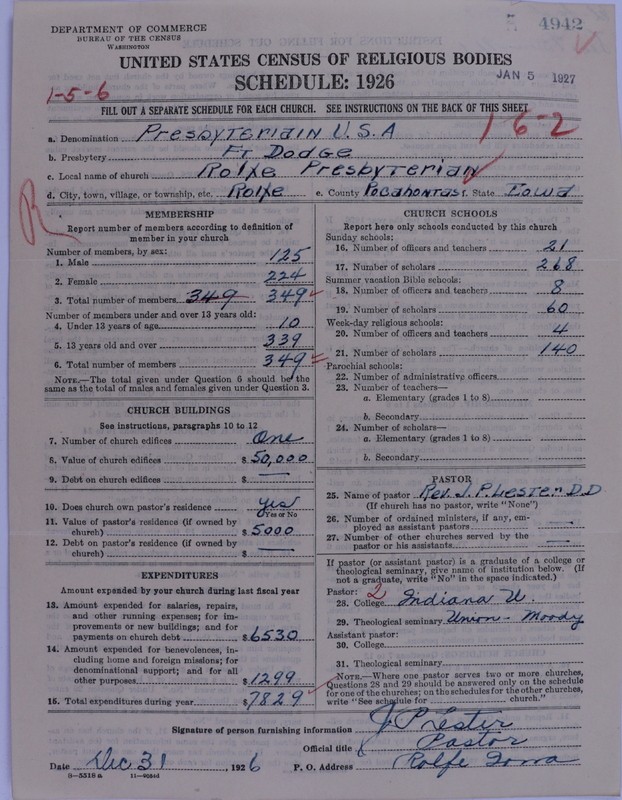 DEPARTMENT OF COMMERCE
BUREAU OF THE CENSUS
WASHINGTON
4942
UNITED STATES CENSUS OF RELIGIOUS BODIES
SCHEDULE: 1926
JAN 5 1927
1-5-6
FILL OUT A SEPARATE SCHEDULE FOR EACH CHURCH. SEE INSTRUCTIONS ON THE BACK OF THIS SHEET
1-6-2
a. Denomination Presbyterian U.S.A
b. Presbytery Ft Dodge
c. Local name of church Rolfe Presbyterian
d. City, town, village, or township, etc. Rolfe e. County Pocahontas f. State Iowa
R
MEMBERSHIP
Report number of members according to definition of member in your church
Number of members, by sex:
1. Male 125
2. Female 224
3. Total number of members 349 349
Number of members under and over 13 years old:
4. Under 13 years of age 10
5. 13 years old and over 339
6. Total number of members 349
NOTE.—The total given under Question 6 should be the same as the total of males and females given under Question 3.
CHURCH BUILDINGS
See instructions, paragraphs 10 to 12
7. Number of church edifices One
8. Value of church edifices $50,000
9. Debt on church edifices $ —
10. Does church own pastor's residence yes
Yes or No
11. Value of pastor's residence (if owned by church) $5000
12. Debt on pastor's residence (if owned by church) $ —
EXPENDITURES
Amount expended by your church during last fiscal year
13. Amount expended for salaries, repairs, and other running expenses; for improvements or new buildings; and for payments on church debt $6530
14. Amount expended for benevolences, including home and foreign missions; for denominational support; and for all other purposes $1299
15. Total expenditures during year $7829
CHURCH SCHOOLS
Report here only schools conducted by this church
Sunday schools:
16. Number of officers and teachers 21
17. Number of scholars 268
Summer vacation Bible schools:
18. Number of officers and teachers 8
19. Number of scholars 60
Week-day religious schools:
20. Number of officers and teachers 4
21. Number of scholars 140
Parochial schools:
22. Number of administrative officers
23. Number of teachers—
a. Elementary (grades 1 to 8)
b. Secondary
24. Number of scholars—
a. Elementary (grades 1 to 8)
b. Secondary
PASTOR
25. Name of pastor Rev. J. P. Lester D.D
(If church has no pastor, write "None")
26. Number of ordained ministers, if any, employed as assistant pastors —
27. Number of other churches served by the pastor or his assistants —
If pastor (or assistant pastor) is a graduate of a college or theological seminary, give name of institution below. (If not a graduate, write "No" in the space indicated.)
Pastor: 2
28. College Indiana U.
29. Theological seminary Union - Moody
Assistant pastor:
30. College
31. Theological seminary
NOTE.—Where one pastor serves two or more churches, Questions 28 and 29 should be answered only on the schedule for one of the churches; on the schedules for the other churches, write "See schedule for church."
Signature of person furnishing information J P Lester
Official title Pastor
Date Dec 31, 1926 P. O. Address Rolfe Iowa
8—5518a 11—9084d